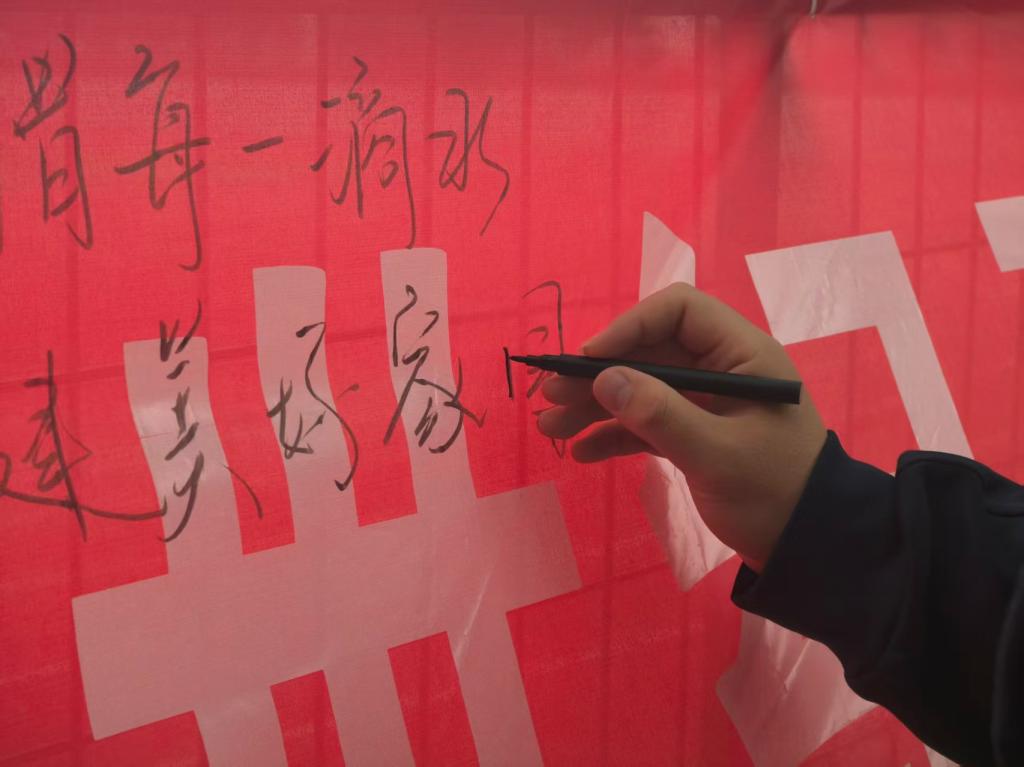 惜每一滴水
建美好家